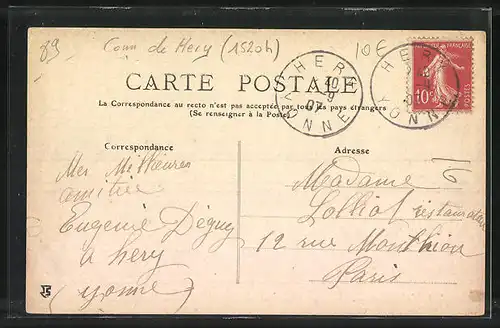 89
Conn de Hery (1520h)
10€
HERY
10-9
07
YONNE
HERY
YONNE
RÉPUBLIQUE FRANÇAISE
10c
POSTES
CARTE POSTALE
La Correspondance au recto n'est pas acceptée par tous les pays étrangers
(Se renseigner à la Poste)
Correspondance
Adresse
Mes Meilleures
amitiés
Eugenie Déguy
à hery
(yonne)
Madame
Lolliot restaurateur
12 rue Monthion
Paris